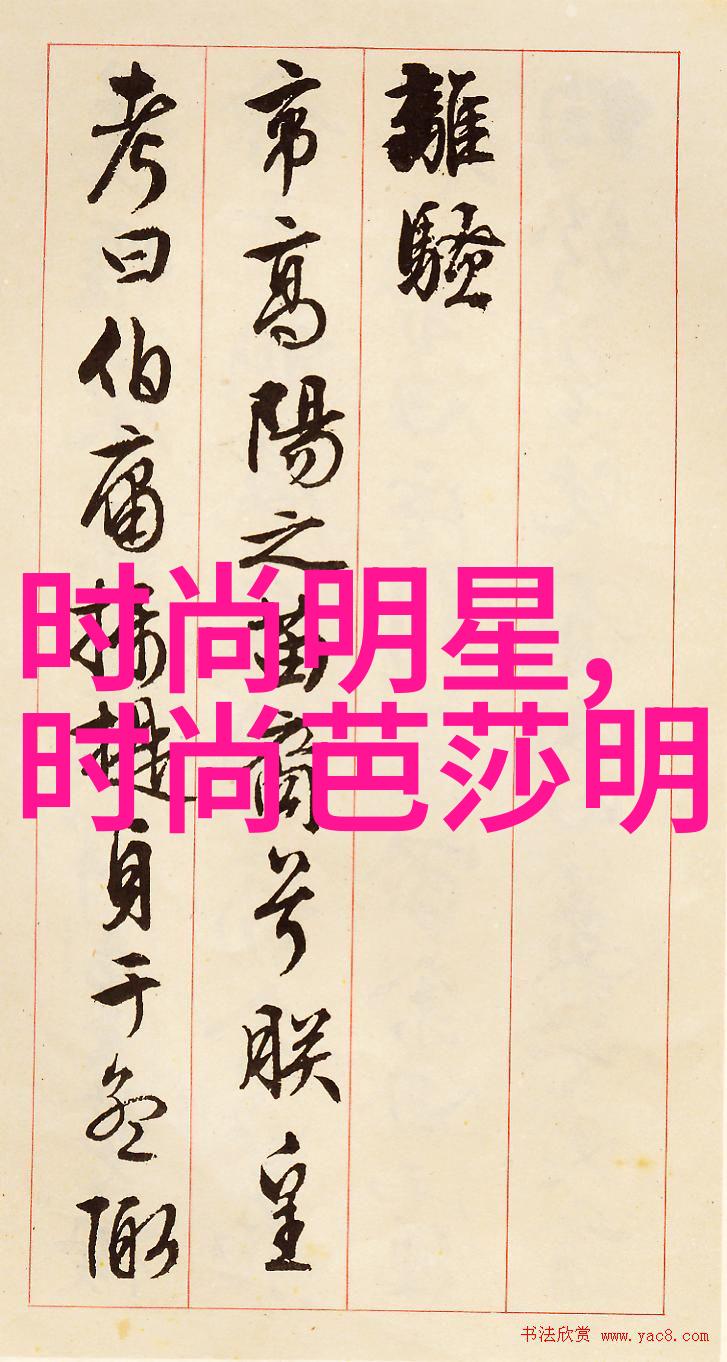 離騷
帝高陽之苗裔兮朕皇
考曰伯庸攝提貞于孟陬
时尚明星,
时尚芭莎明
书法欣赏 www.yac8.com